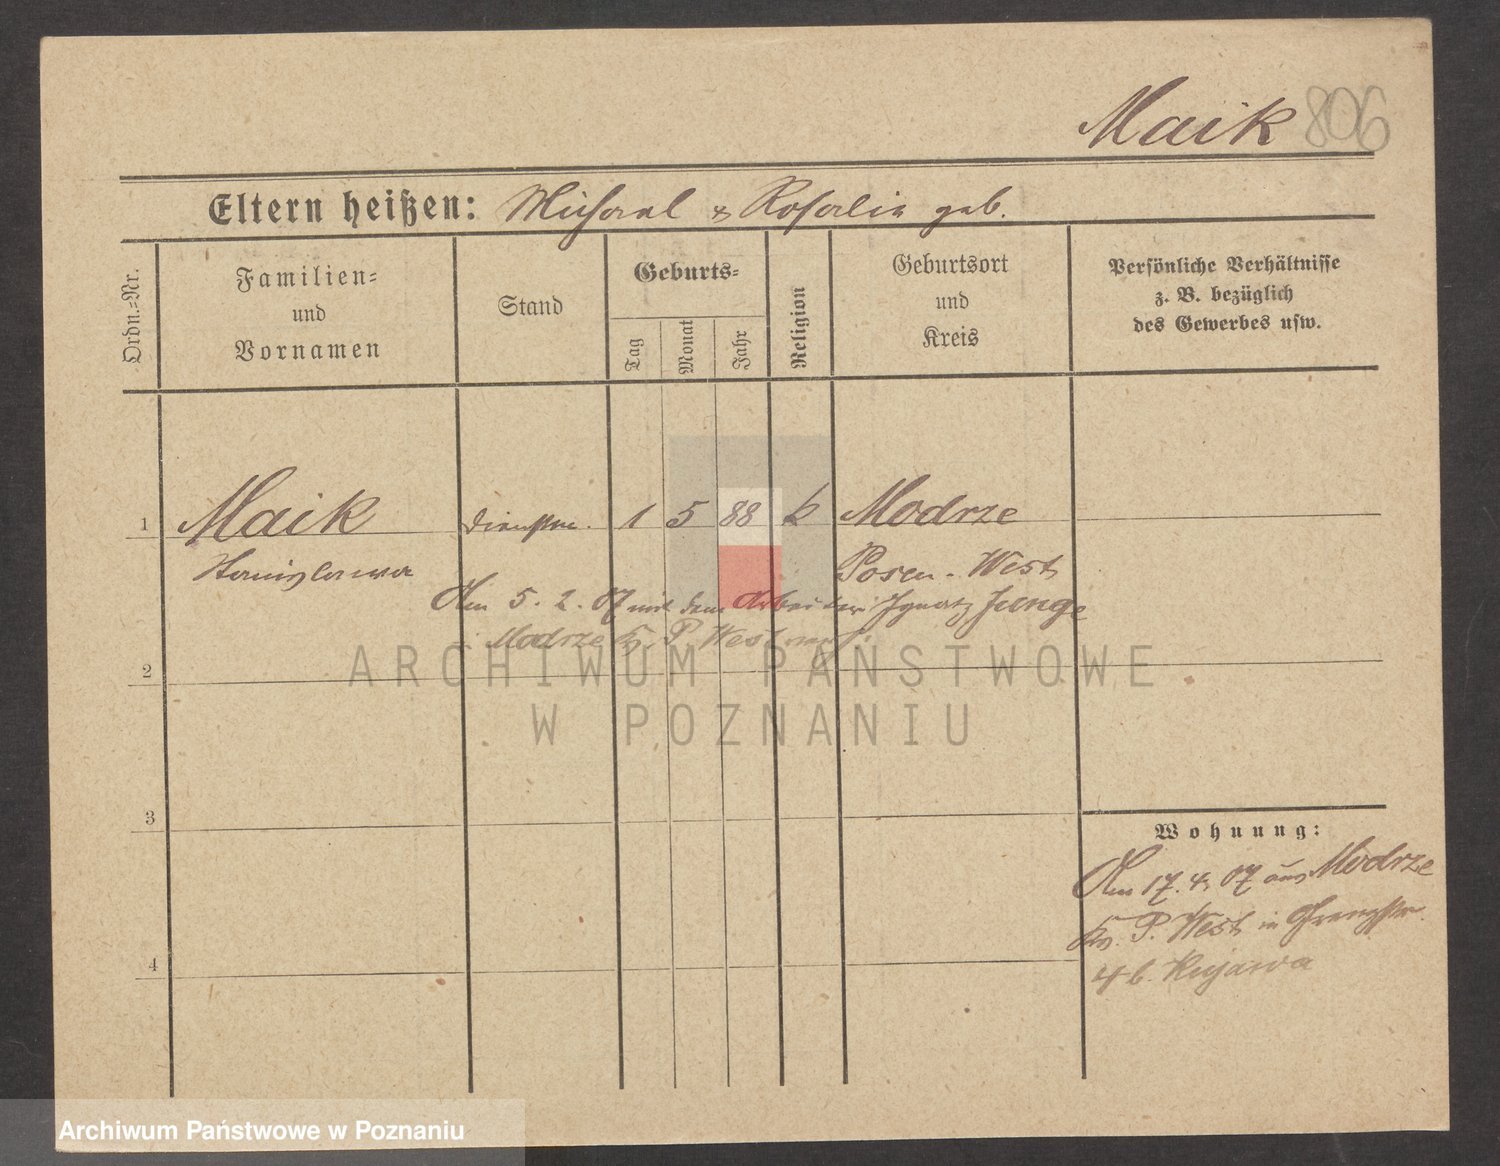 Maik 806
Eltern heißen: Michael & Rosalie geb.
Ordn.-Nr.
Familien-
und
Vornamen
Stand
Geburts-
Tag
Monat
Jahr
Religion
Geburtsort
und
Kreis
Persönliche Verhältnisse
z. B. bezüglich
des Gewerbes usw.
1 Maik 1 5 88 k Modrze
Stanislawa Posen-West
Am 5. 2. 07 mit dem Arbeiter Ignatz
i Modrze Kr. P. West
2
3
4
Wohnung:
Am 17. 4. 07 aus Modrze
Kr. P. West in Grenzstr.
4 b. Kujawa
ARCHIWUM PAŃSTWOWE
W POZNANIU
Archiwum Państwowe w Poznaniu